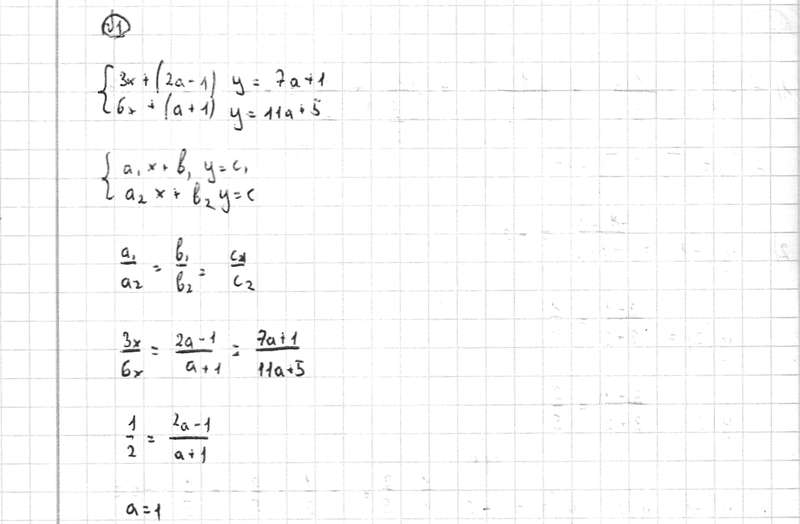 №1
3x + (2a - 1) y = 7a + 1
6x + (a + 1) y = 11a + 5
a₁ x + b₁ y = c₁
a₂ x + b₂ y = c
a₁/a₂ = b₁/b₂ = c₁/c₂
3x/6x = 2a - 1/a + 1 = 7a + 1/11a + 5
1/2 = 2a - 1/a + 1
a = 1